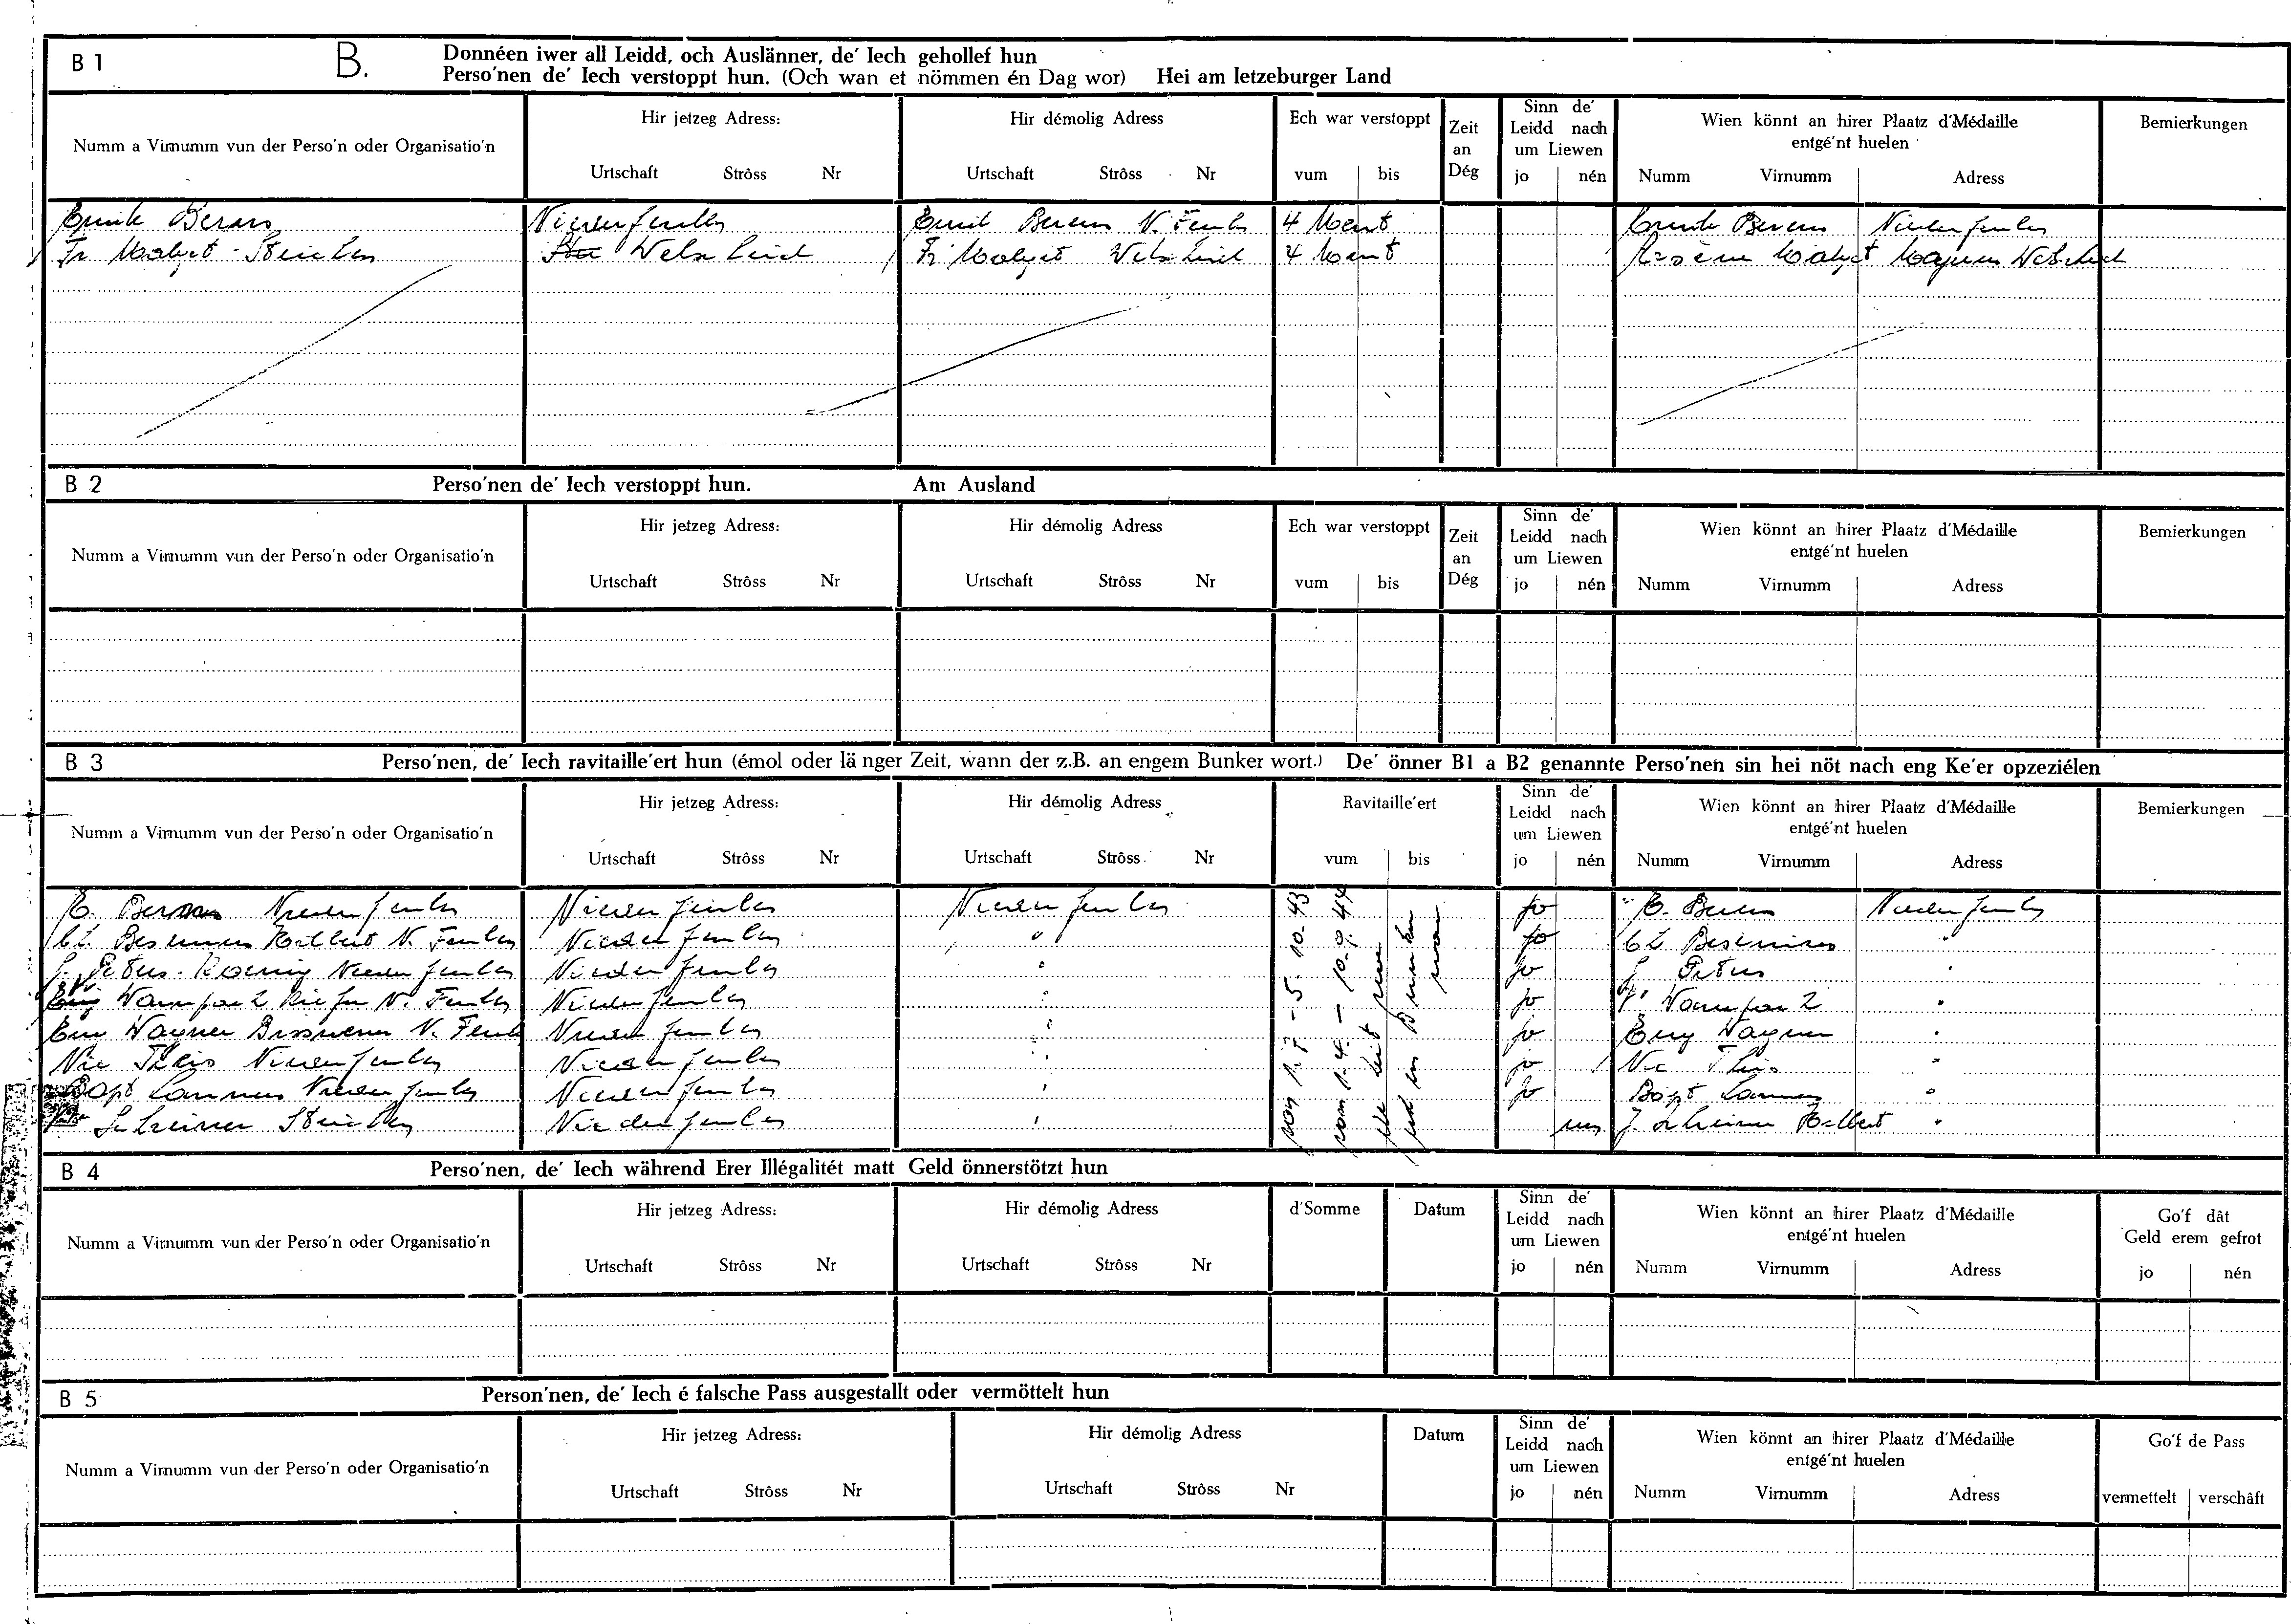 B 1
B.
Donnéen iwer all Leidd, och Auslänner, de' Iech gehollef hun
Perso'nen de' Iech verstoppt hun. (Och wan et nömmen én Dag wor) Hei am letzeburger Land
Numm a Virnumm vun der Perso'n oder Organisatio'n
Hir jetzeg Adress:
Urtschaft Strôss Nr
Hir démolig Adress
Urtschaft Strôss Nr
Ech war verstoppt
vum bis
Zeit
an
Dég
Sinn de'
Leidd nach
um Liewen
jo nén
Wien könnt an hirer Plaatz d'Médaille
entgé'nt huelen
Numm Virnumm Adress
Bemierkungen
Niederfeulen
Emil Berens N. Feulen
4
Berens Niederfeulen
Fr
Welscheid
Fr Welscheid
4
B 2
Perso'nen de' Iech verstoppt hun. Am Ausland
Numm a Virnumm vun der Perso'n oder Organisatio'n
Hir jetzeg Adress:
Urtschaft Strôss Nr
Hir démolig Adress
Urtschaft Strôss Nr
Ech war verstoppt
vum bis
Zeit
an
Dég
Sinn de'
Leidd nach
um Liewen
jo nén
Wien könnt an hirer Plaatz d'Médaille
entgé'nt huelen
Numm Virnumm Adress
Bemierkungen
B 3
Perso'nen, de' Iech ravitaille'ert hun (émol oder länger Zeit, wann der z.B. an engem Bunker wort.) De' önner B1 a B2 genannte Perso'nen sin hei nöt nach eng Ke'er opzeziélen
Numm a Virnumm vun der Perso'n oder Organisatio'n
Hir jetzeg Adress:
Urtschaft Strôss Nr
Hir démolig Adress
Urtschaft Strôss Nr
Ravitaille'ert
vum bis
Sinn de'
Leidd nach
um Liewen
jo nén
Wien könnt an hirer Plaatz d'Médaille
entgé'nt huelen
Numm Virnumm Adress
Bemierkungen
E. Berens Niederfeulen Niederfeulen Niederfeulen jo E. Berens Niederfeulen
N. Feulen Niederfeulen " jo "
Niederfeulen Niederfeulen " jo "
N. Feulen Niederfeulen " jo "
Eug Wagner N. Feulen Niederfeulen " jo Eug Wagner "
Nic Theis Niederfeulen Niederfeulen " jo Nic Theis "
Bapt Niederfeulen Niederfeulen " jo Bapt "
Niederfeulen " "
5. 10. 43
10. 9. 44
B 4
Perso'nen, de' Iech während Erer Illégalitét matt Geld önnerstötzt hun
Numm a Virnumm vun der Perso'n oder Organisatio'n
Hir jetzeg Adress:
Urtschaft Strôss Nr
Hir démolig Adress
Urtschaft Strôss Nr
d'Somme
Datum
Sinn de'
Leidd nach
um Liewen
jo nén
Wien könnt an hirer Plaatz d'Médaille
entgé'nt huelen
Numm Virnumm Adress
Go'f dât
Geld erem gefrot
jo nén
B 5
Person'nen, de' Iech é falsche Pass ausgestallt oder vermöttelt hun
Numm a Virnumm vun der Perso'n oder Organisatio'n
Hir jetzeg Adress:
Urtschaft Strôss Nr
Hir démolig Adress
Urtschaft Strôss Nr
Datum
Sinn de'
Leidd nach
um Liewen
jo nén
Wien könnt an hirer Plaatz d'Médaille
entgé'nt huelen
Numm Virnumm Adress
Go'f de Pass
vermettelt verschâft